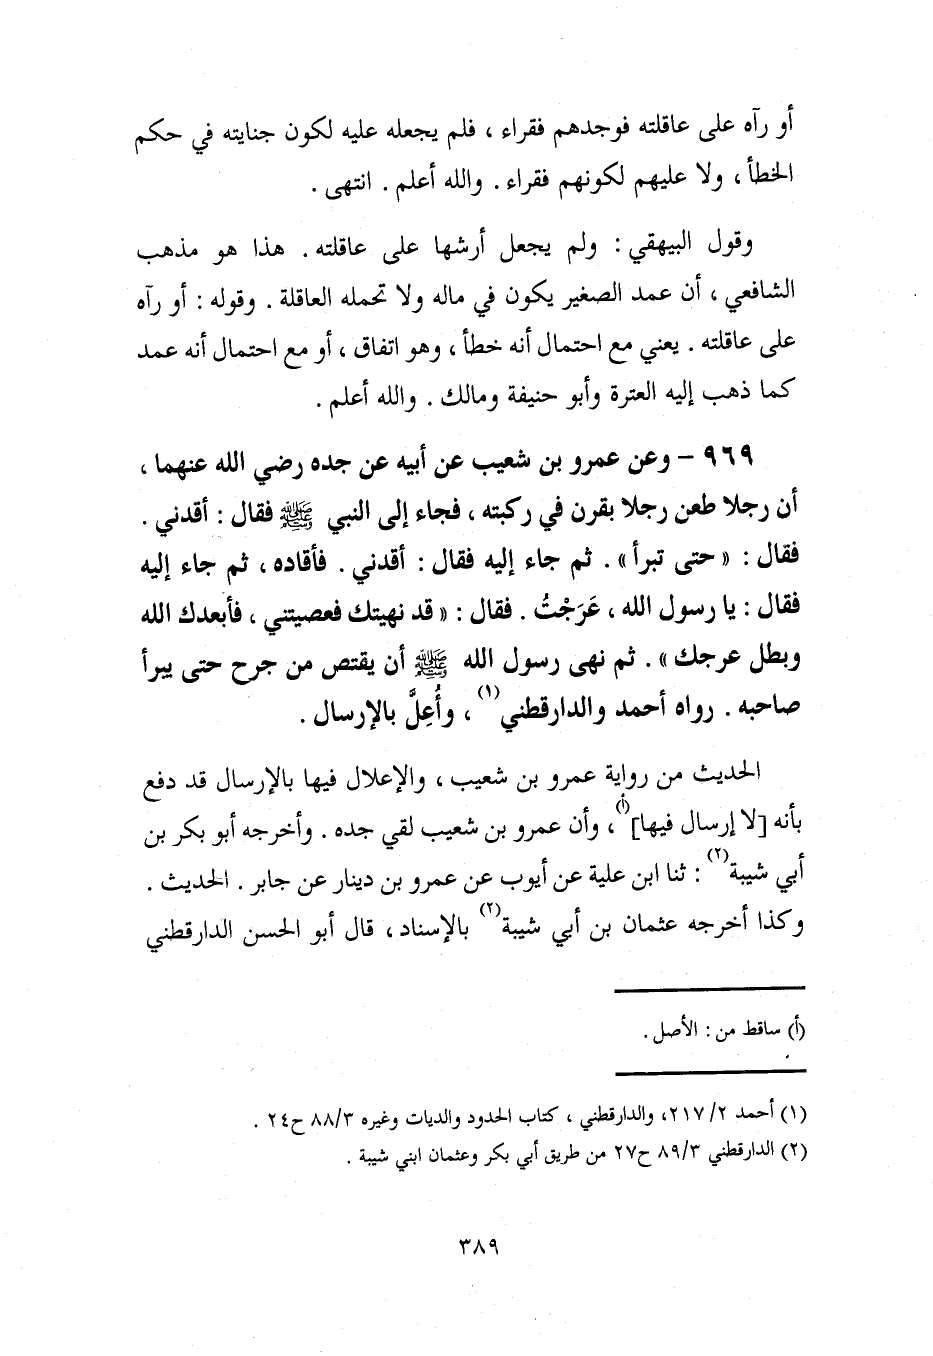 أو رآه على عاقلته فوجدهم فقراء ، فلم يجعله عليه لكون جنايته في حكم
الخطأ ، ولا عليهم لكونهم فقراء . والله أعلم . انتهى .
وقول البيهقي : ولم يجعل أرشها على عاقلته . هذا هو مذهب
الشافعي ، أن عمد الصغير يكون في ماله ولا تحمله العاقلة . وقوله : أو رآه
على عاقلته . يعني مع احتمال أنه خطأ ، وهو اتفاق ، أو مع احتمال أنه عمد
كما ذهب إليه العترة وأبو حنيفة ومالك . والله أعلم .
٩٦٩ - وعن عمرو بن شعيب عن أبيه عن جده رضي الله عنهما ،
أن رجلا طعن رجلا بقرن في ركبته ، فجاء إلى النبي ﷺ فقال : أقدني .
فقال : « حتى تبرأ » . ثم جاء إليه فقال : أقدني . فأقاده ، ثم جاء إليه
فقال : يا رسول الله ، عَرَجْتُ . فقال : « قد نهيتك فعصيتني ، فأبعدك الله
وبطل عرجك » . ثم نهى رسول الله ﷺ أن يقتص من جرح حتى يبرأ
صاحبه . رواه أحمد والدارقطني(١) ، وأُعِلَّ بالإرسال .
الحديث من رواية عمرو بن شعيب ، والإعلال فيها بالإرسال قد دفع
بأنه [لا إرسال فيها](أ)، وأن عمرو بن شعيب لقي جده . وأخرجه أبو بكر بن
أبي شيبة(٢) : ثنا ابن علية عن أيوب عن عمرو بن دينار عن جابر . الحديث .
وكذا أخرجه عثمان بن أبي شيبة(٢) بالإسناد ، قال أبو الحسن الدارقطني
(أ) ساقط من : الأصل .
(١) أحمد ٢/ ٢١٧، والدارقطني ، كتاب الحدود والديات وغيره ٨٨/٣ ح٢٤ .
(٢) الدارقطني ٨٩/٣ ح٢٧ من طريق أبي بكر وعثمان ابني شيبة .
٣٨٩